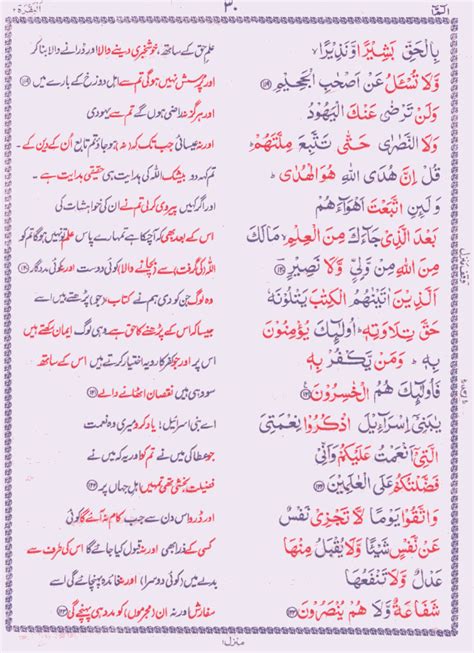 الٓمّٓ
٣٠
البقرة ٢
بِالْحَقِّ بَشِيْرًا وَّنَذِيْرًا ۙ
وَّلَا تُسْـَٔلُ عَنْ اَصْحٰبِ الْجَحِيْمِ ﴿١١٩﴾
وَلَنْ تَرْضٰى عَنْكَ الْيَهُوْدُ
وَلَا النَّصٰرٰى حَتّٰى تَتَّبِعَ مِلَّتَهُمْ ؕ
قُلْ اِنَّ هُدَى اللّٰهِ هُوَ الْهُدٰى ؕ
وَلَىِٕنِ اتَّبَعْتَ اَهْوَآءَهُمْ
بَعْدَ الَّذِيْ جَآءَكَ مِنَ الْعِلْمِ ۙ مَا لَكَ
مِنَ اللّٰهِ مِنْ وَّلِيٍّ وَّلَا نَصِيْرٍ ﴿١٢٠﴾
اَلَّذِيْنَ اٰتَيْنٰهُمُ الْكِتٰبَ يَتْلُوْنَهٗ
حَقَّ تِلَاوَتِهٖ ؕ اُولٰٓىِٕكَ يُؤْمِنُوْنَ
بِهٖ ؕ وَمَنْ يَّكْفُرْ بِهٖ
فَاُولٰٓىِٕكَ هُمُ الْخٰسِرُوْنَ ﴿١٢١﴾
يٰبَنِيْٓ اِسْرَآءِيْلَ اذْكُرُوْا نِعْمَتِيَ
الَّتِيْٓ اَنْعَمْتُ عَلَيْكُمْ وَاَنِّيْ
فَضَّلْتُكُمْ عَلَى الْعٰلَمِيْنَ ﴿١٢٢﴾
وَاتَّقُوْا يَوْمًا لَّا تَجْزِيْ نَفْسٌ
عَنْ نَّفْسٍ شَيْـًٔا وَّلَا يُقْبَلُ مِنْهَا
عَدْلٌ وَّلَا تَنْفَعُهَا
شَفَاعَةٌ وَّلَا هُمْ يُنْصَرُوْنَ ﴿١٢٣﴾
علمِ حق کے ساتھ، خوشخبری دینے والا اور ڈرانے والا بنا کر
اور پرسش نہیں ہوگی تم سے اہل دوزخ کے بارے میں ﴿١١٩﴾
اور ہرگز نہ راضی ہوں گے تم سے یہودی
اور نہ عیسائی جب تک کہ (نہ ہو جاؤ تم تابع اُن کے دین کے
تم کہہ دو بیشک اللہ کی ہدایت ہی حقیقی ہدایت ہے
اور اگر کہیں پیروی کرلی تم نے ان کی خواہشات کی
اس کے بعد بھی کہ آچکا ہے تمہارے پاس علم تو نہیں ہوگا تم کو
اللہ کی گرفت) سے (بچانے والا) کوئی دوست اور نہ کوئی مددگار ﴿١٢٠﴾
وہ لوگ جن کو دی ہم نے کتاب (جو) پڑھتے ہیں اسے
جیسا کہ اس کے پڑھنے کا حق ہے وہی لوگ ایمان رکھتے ہیں
اس پر۔ اور جو کفر کا رویہ اختیار کرتے ہیں اس کے ساتھ
سو وہی ہیں نقصان اٹھانے والے ﴿١٢١﴾
اے بنی اسرائیل! یاد کرو میری وہ نعمت
جو عطا کی میں نے تم کو اور یہ کہ میں نے
فضیلت بخشی تھی تمہیں اہل جہاں پر ﴿١٢٢﴾
اور ڈرو اس دن سے جب نہ کام آئے گا کوئی
کسی کے ذرا بھی اور نہ قبول کیا جائے گا اس کی طرف سے
بدلے میں (کوئی دوسرا) اور نہ فائدہ پہنچائے گی اسے
سفارش اور نہ ان (مجرموں) کو مدد ہی پہنچے گی ﴿١٢٣﴾
منزل ١